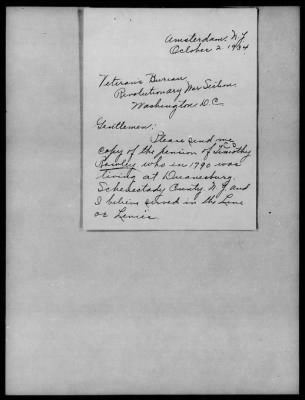 Amsterdam, N.Y.
October 2 1934
Veterans Bureau
Revolutionary War Section
Washington, D.C.
Gentlemen:
Please send me
copy of the pension of Timothy
who in 1790 was
living at Duanesburg,
Schenectady County, N.Y. and
I believe served in the Line
or Levies.